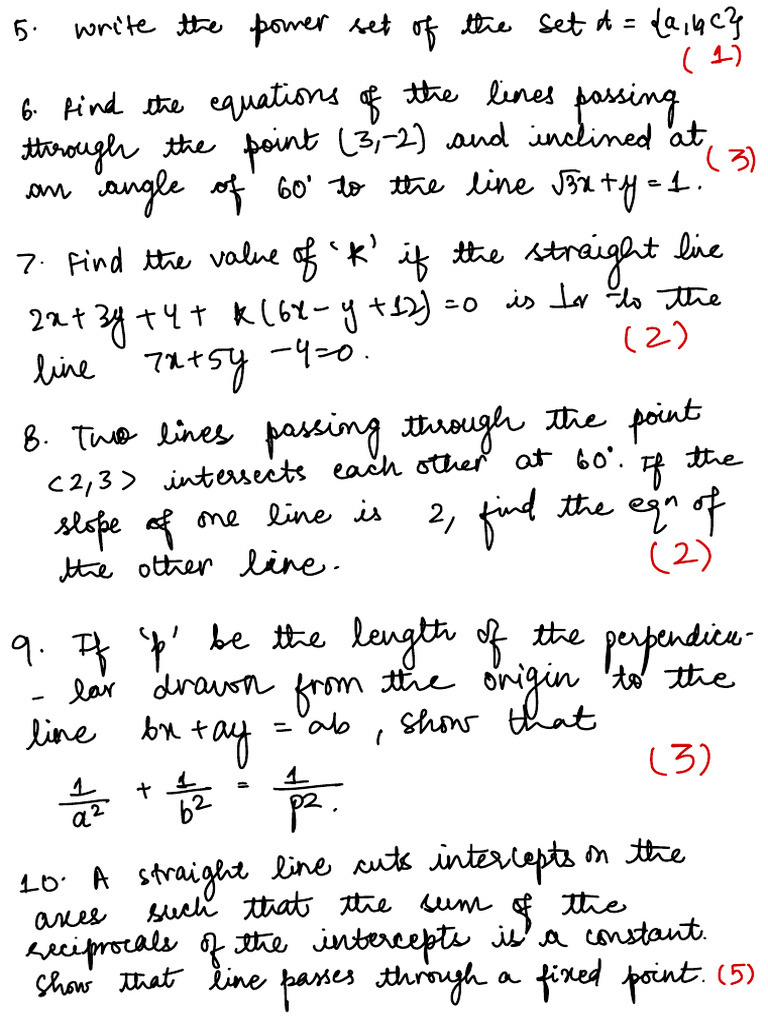 5. Write the power set of the set A = {a,b,c}
(1)
6. Find the equations of the lines passing
through the point (3,-2) and inclined at
an angle of 60° to the line √3x+y=1.
(3)
7. Find the value of 'k' if the straight line
2x+3y+4+ k(6x-y+12)=0 is ⊥r to the
line 7x+5y-4=0.
(2)
8. Two lines passing through the point
<2,3> intersects each other at 60°. If the
slope of one line is 2, find the eqn of
the other line.
(2)
9. If 'p' be the length of the perpendicu-
-lar drawn from the origin to the
line bx+ay = ab, show that
(3)
1/a² + 1/b² = 1/p².
10. A straight line cuts intercepts on the
axes such that the sum of the
reciprocals of the intercepts is a constant.
Show that line passes through a fixed point. (5)